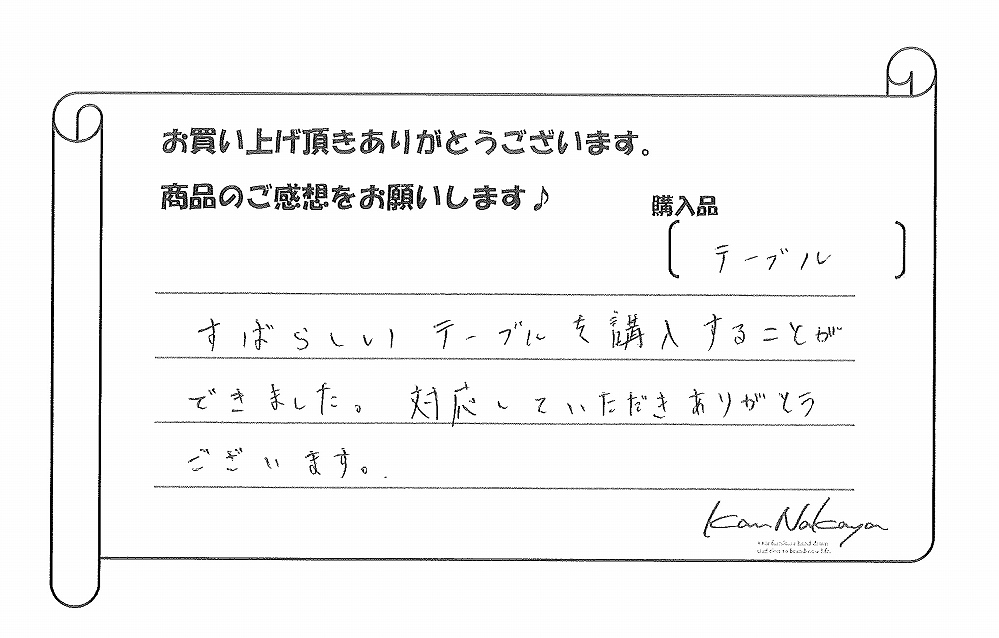 お買い上げ頂きありがとうございます。
商品のご感想をお願いします♪
購入品
〔 テーブル 〕
すばらしい テーブルを講入することが
できました。 対応していただきありがとう
ございます。
Kan Nakaya